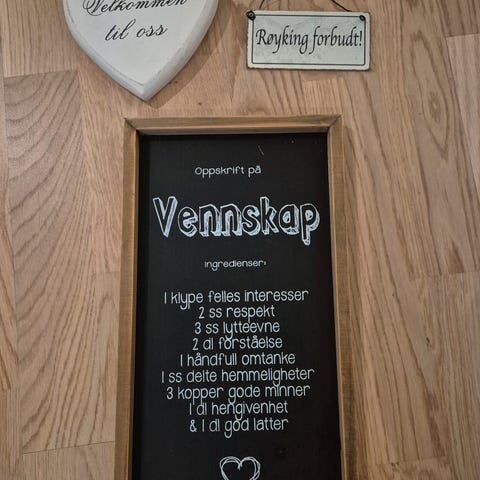 Velkommen
til oss
Røyking forbudt!
Oppskrift på
Vennskap
ingredienser:
1 klype felles interesser
2 ss respekt
3 ss lytteevne
2 dl forståelse
1 håndfull omtanke
1 ss delte hemmeligheter
3 kopper gode minner
1 dl hengivenhet
& 1 dl god latter